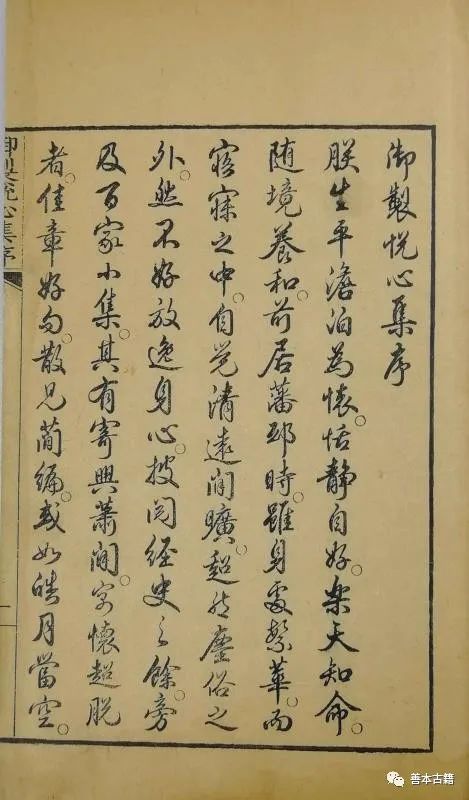 御製悅心集序
朕生平澹泊為懷。恬靜自好。樂天知命。
隨境養和。前居藩邸時。雖身處繁華。而
寤寐之中。自覺清遠閒曠。超然塵俗之
外。然不好放逸身心。披閱經史之餘。旁
及百家小集。其有寄興蕭閒。寫懷超脫
者。佳章好句。散見簡編。或如皓月當空。
御製悅心集序
善本古籍